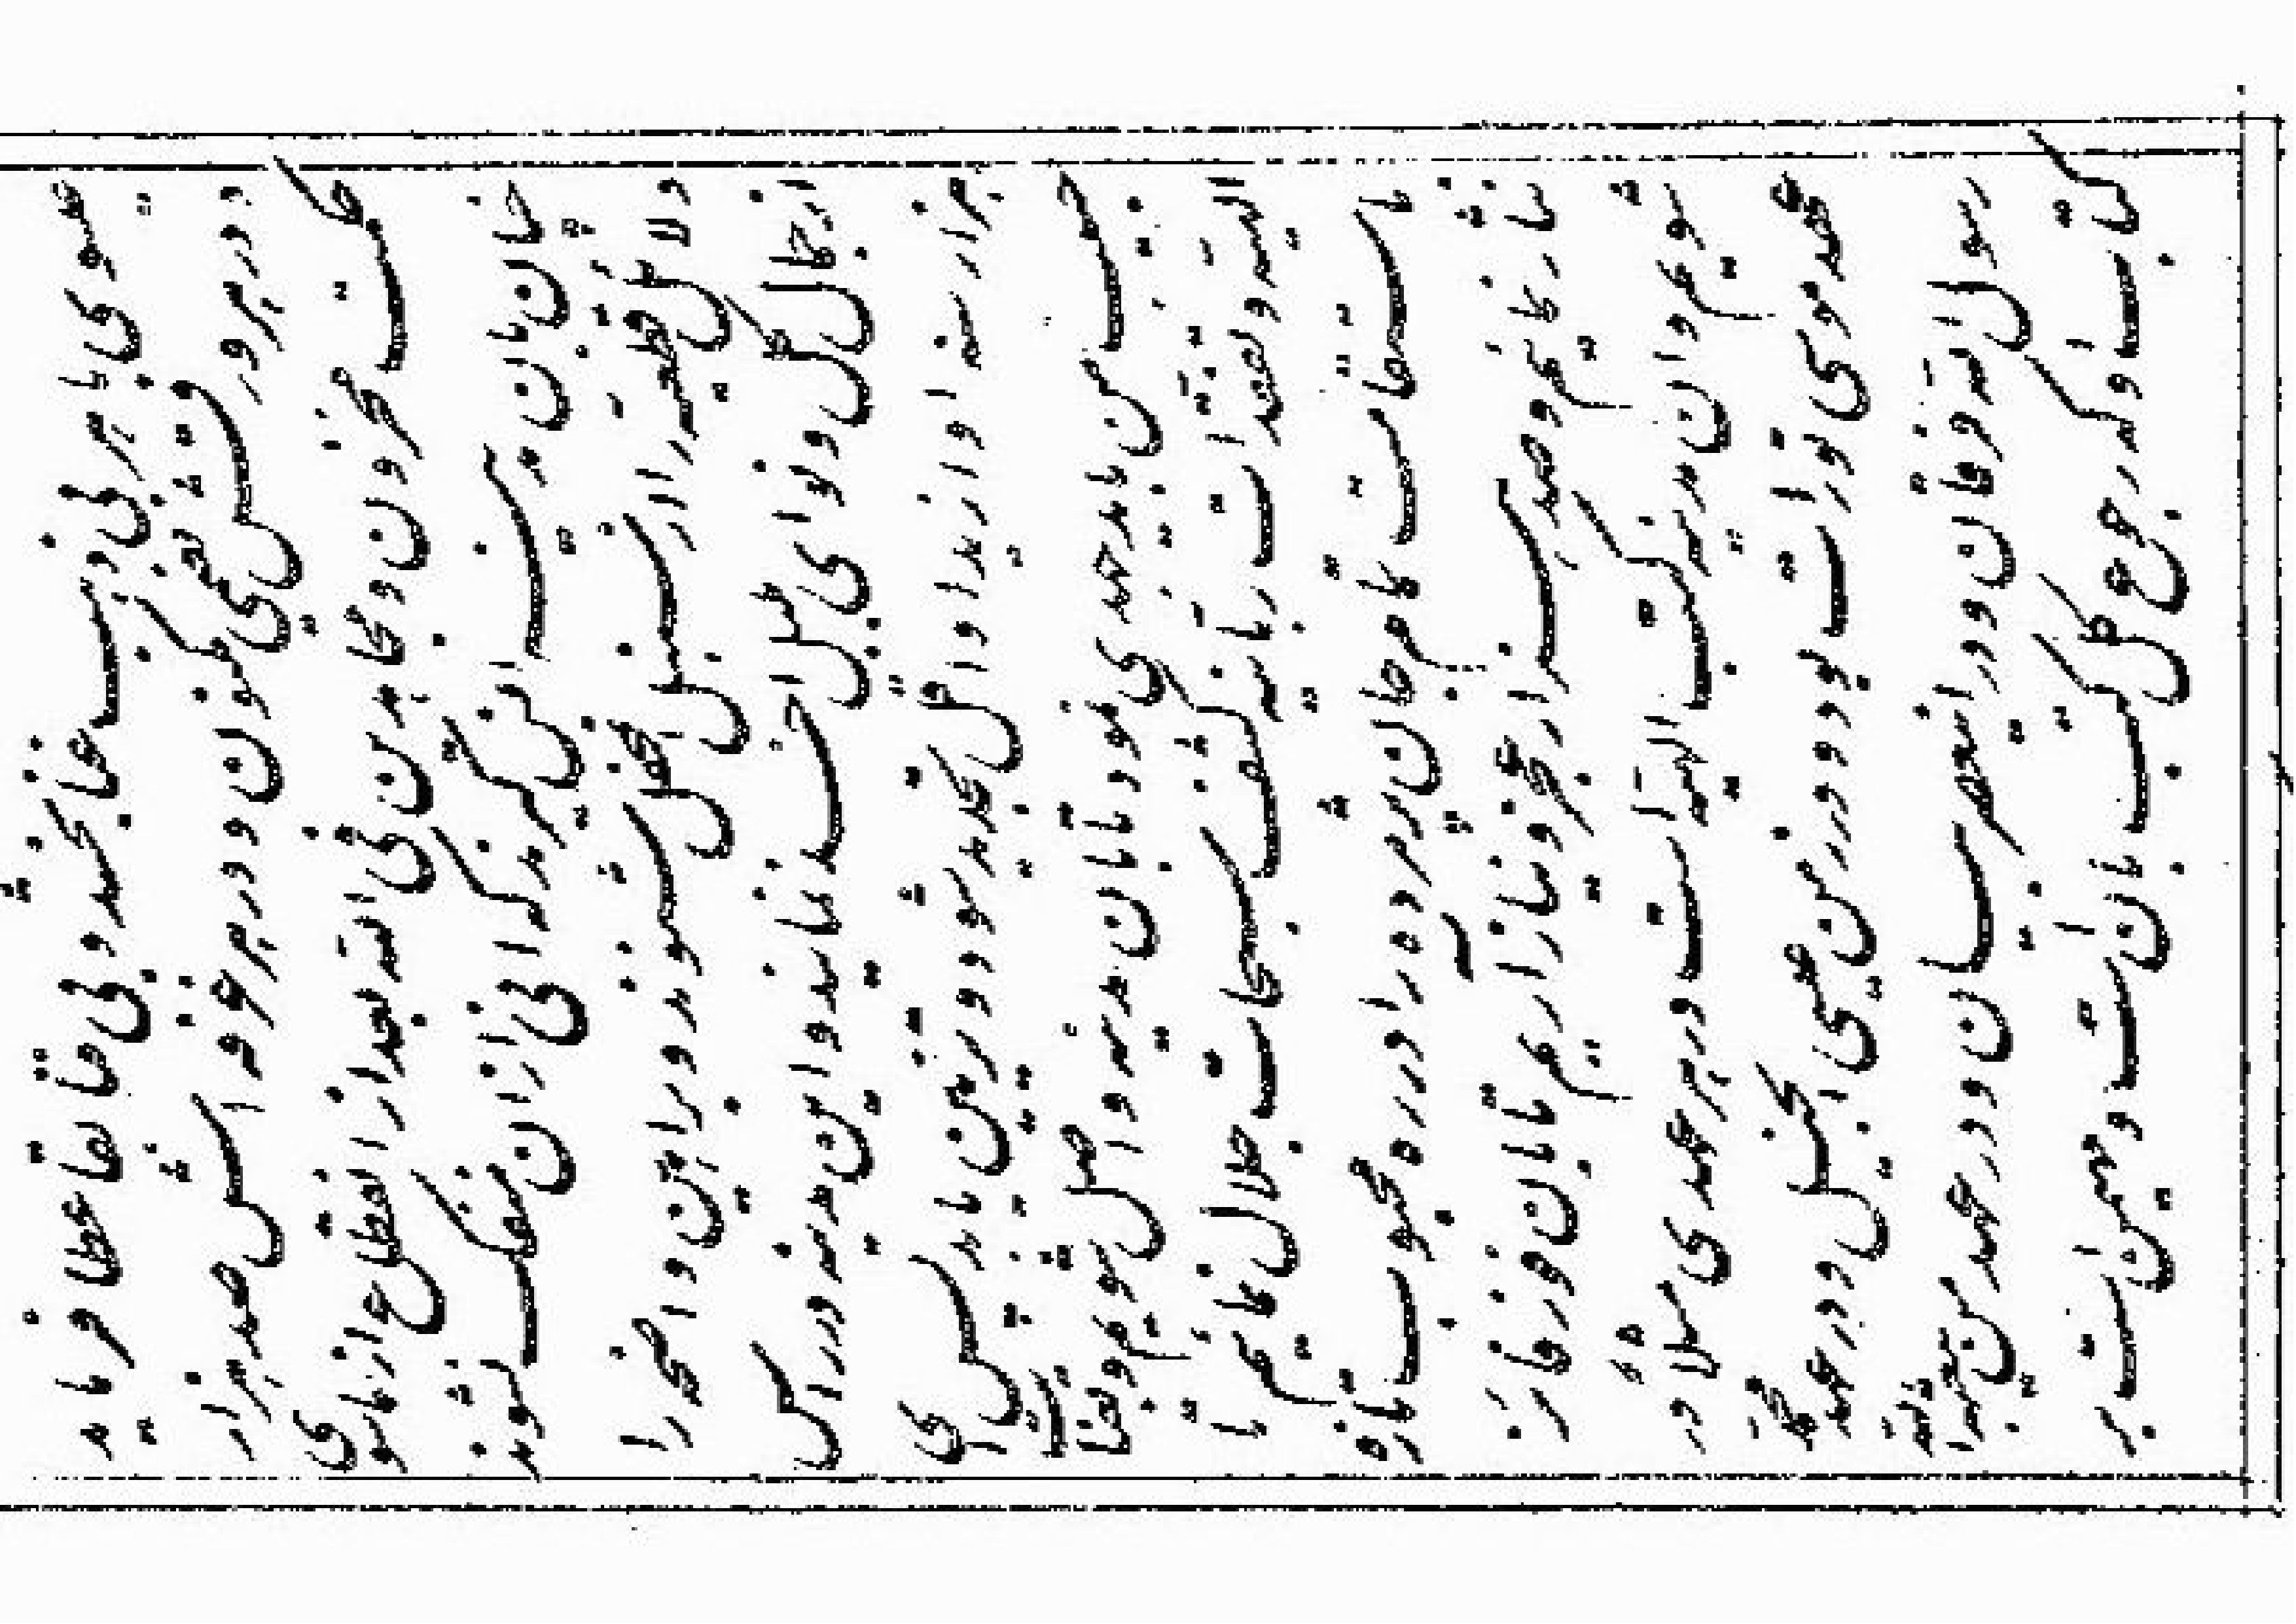 غنا بخشد و بی فنا بقا عطا فرماید
و در هر ورقش نعیمی مکنون و در هر غرفه اش صد هزار
حکمت مخزون و مجاهدین فی اللّه بعد از انقطاع از ما سوی
چنان بآن مدینه انس گیرند که آنی از آن منفک نشوند
دلائل قطعیّه را از سنبل آن محفل شنوند و براهین واضحه را
از جمال گل و نوای بلبل اخذ نمایند و این مدینه در رأس
هزار سنه او ازید او اقل تجدید شود و تزیین یابد پس ای
حبیب من باید جهدی نمود تا بآن مدینه واصل شویم و بعنایت
الهیّه و تفقّدات ربّانیّه کشف سبحات جلال نمائیم تا
باستقامت تمام جان پژمرده را در ره محبوب تازه
نثار نمائیم و صد هزار عجز و نیاز آریم تا بآن فوز فائز
شویم و آن مدینه کتب الهیّه است در هر عهدی مثلا در
عهد موسی تورات بود و در زمن عیسی انجیل و در عهد محمّد
رسول اللّه فرقان و در این عصر بیان و در عهد من یبعثه اللّه
کتاب او که رجوع کل کتب بآن است و مهیمن است بر